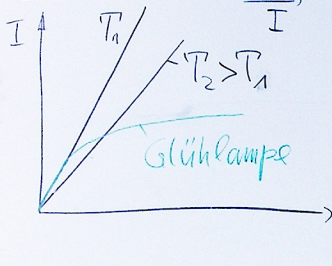 I
I
T₁
T₂ > T₁
Glühlampe